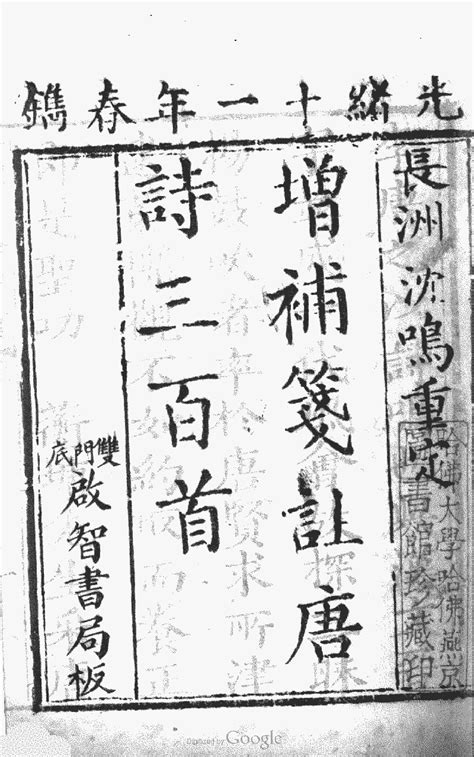 光緒十一年春鐫
長洲沈鳴重定
增補箋註唐
詩三百首
雙門底
啟智書局板
哈佛大學哈佛燕京
圖書館珍藏印
Digitized by Google